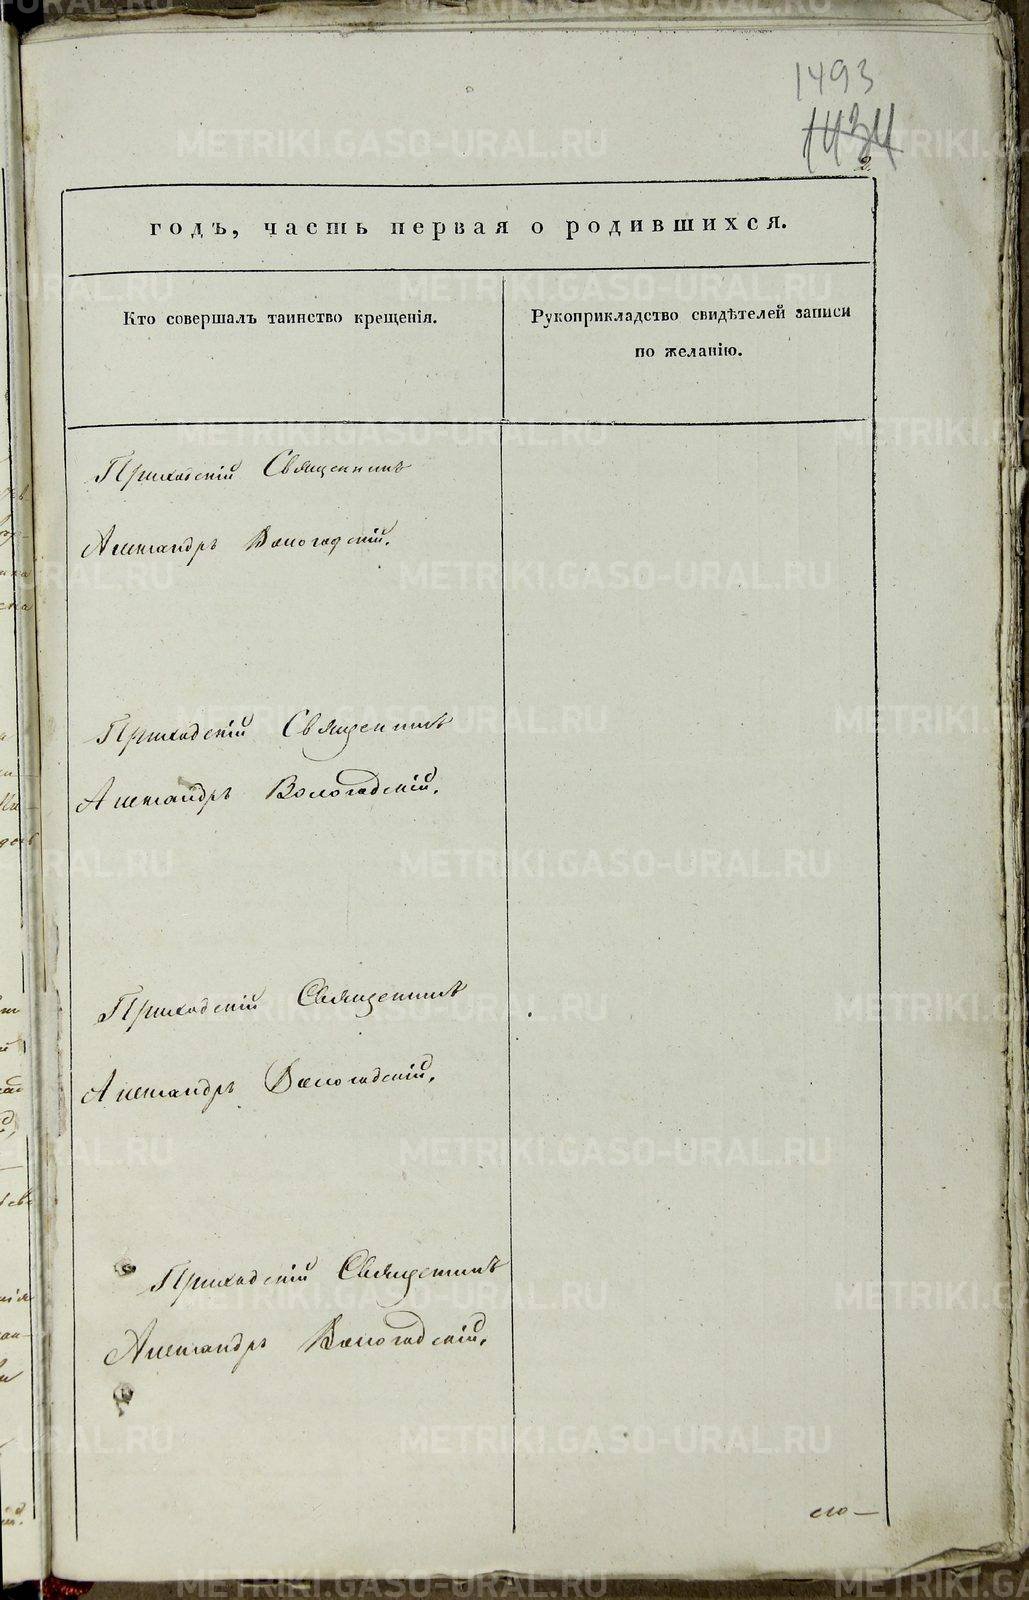 1493
1434
2.
годъ, часть первая о родившихся.
Кто совершалъ таинство крещенія.
Рукоприкладство свидѣтелей записи
по желанію.
Приходскій Священникъ
Александръ Вологодскій.
Приходскій Священникъ
Александръ Вологодскій.
Приходскій Священникъ
Александръ Вологодскій.
Приходскій Священникъ
Александръ Вологодскій.
METRIKI.GASO-URAL.RU